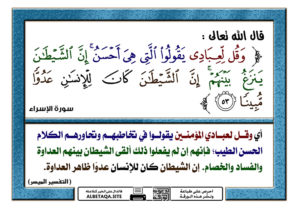 قال الله تعالى :
﴿ وَقُل لِّعِبَادِي يَقُولُوا الَّتِي هِيَ أَحْسَنُ ۚ إِنَّ الشَّيْطَانَ
يَنزَغُ بَيْنَهُمْ ۚ إِنَّ الشَّيْطَانَ كَانَ لِلْإِنسَانِ عَدُوًّا
مُّبِينًا ٥٣ ﴾
سورة الإسراء
أي وقل لعبادي المؤمنين يقولوا في تخاطبهم وتحاورهم الكلام
الحسن الطيب؛ فإنهم إن لم يفعلوا ذلك ألقى الشيطان بينهم العداوة
والفساد والخصام. إن الشيطان كان للإنسان عدوًا ظاهر العداوة.
( التفسير الميسر )
ALBETAQA.SITE